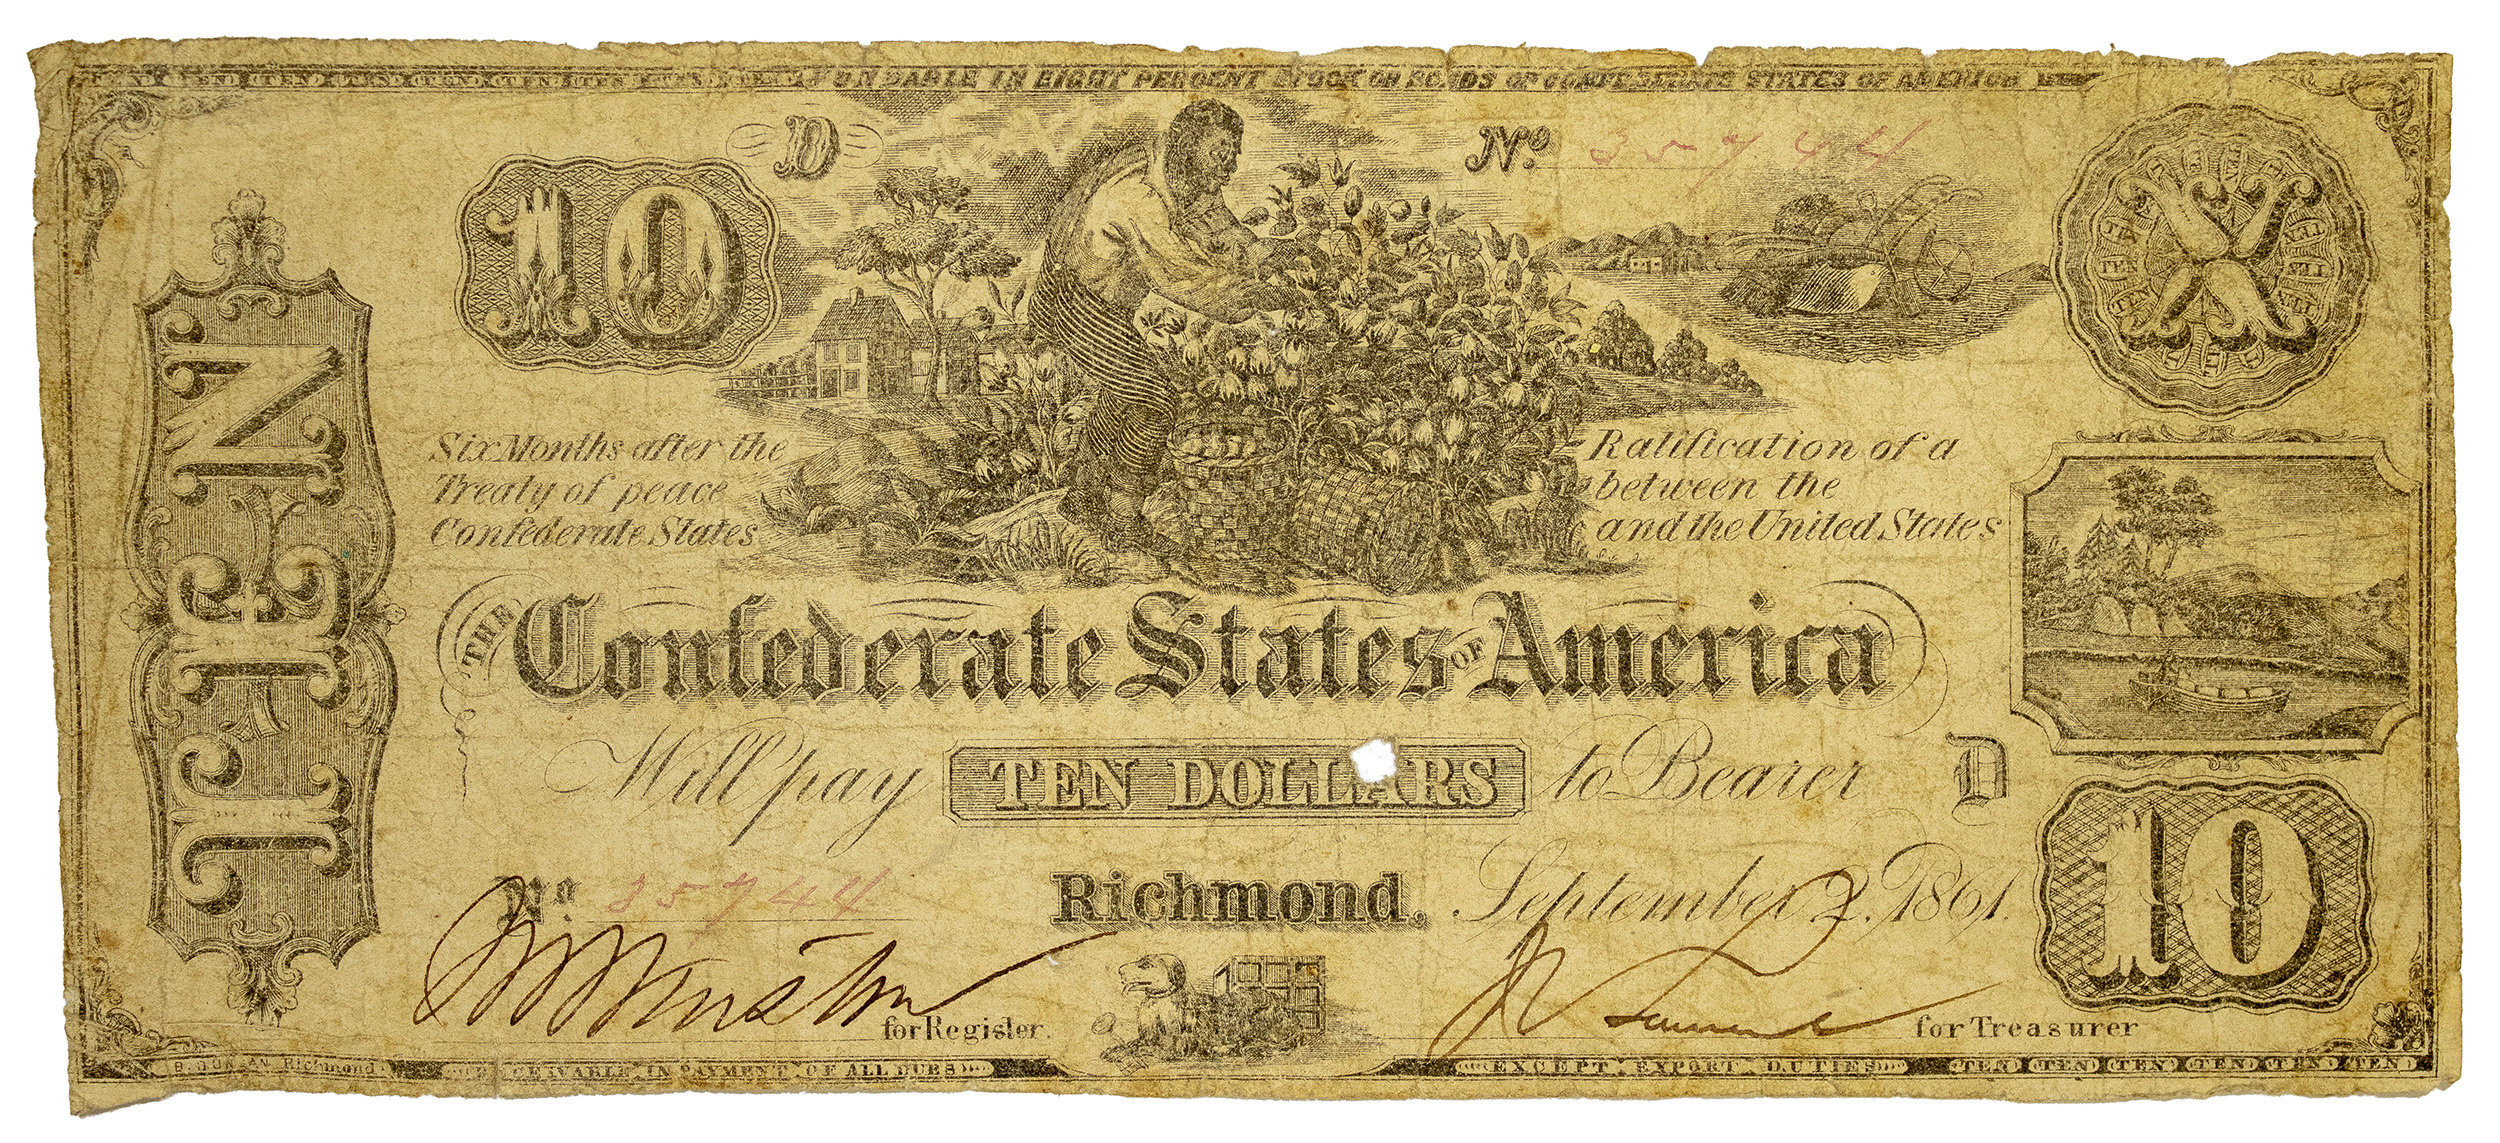 FUNDABLE IN EIGHT PERCENT STOCK OR BONDS OF CONFEDERATE STATES OF AMERICA
D
No. 35744
10
TEN
X
Six Months after the Ratification of a
Treaty of peace between the
Confederate States and the United States
THE Confederate States OF America
Will pay TEN DOLLARS to Bearer D
No. 35744
Richmond, September 2, 1861.
10
for Register.
for Treasurer
B. DUNCAN Richmond.
RECEIVABLE IN PAYMENT OF ALL DUES
EXCEPT EXPORT DUTIES
TEN TEN TEN TEN TEN TEN